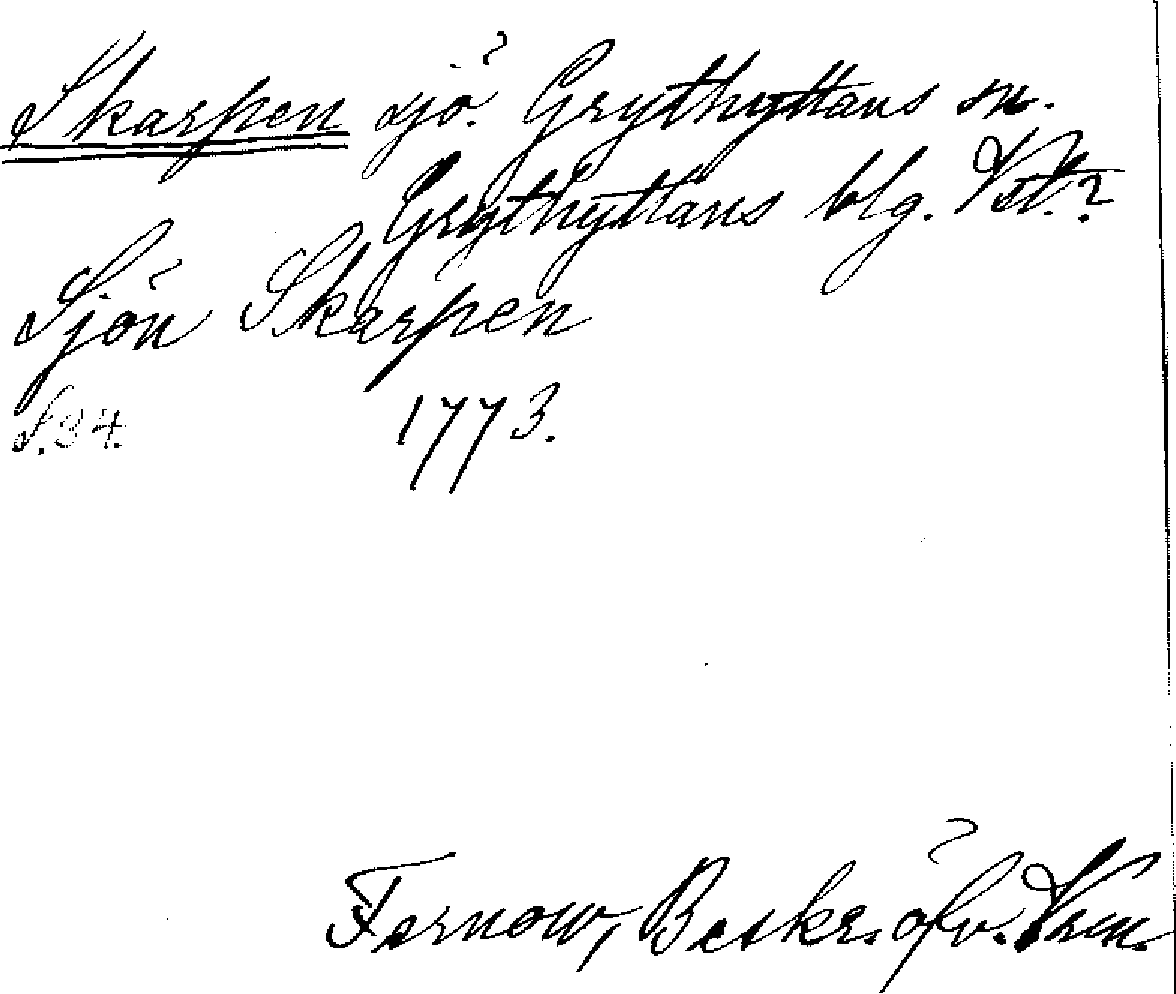 Skarpen sjö. Grythyttans sn.
Grythyttans blg. Vst.?
Sjön Skarpen
S. 34. 1773.
Fernow, Beskr. öfv. Vrm.